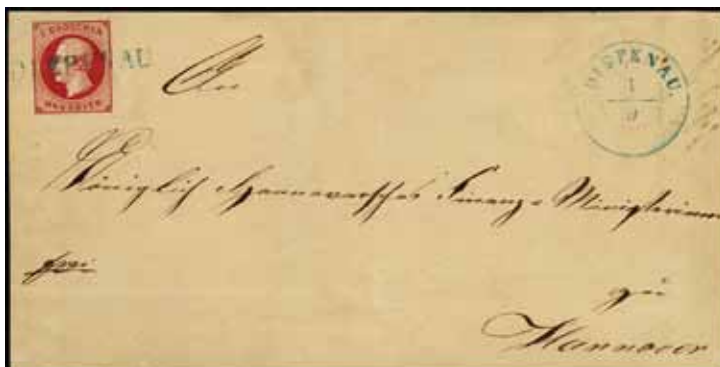 1 GROSCHEN
HANNOVER
DIEPENAU
DIEPENAU.
1
9
An
Königlich Hannoversches Finanz-Ministerium
frei
zu
Hannover